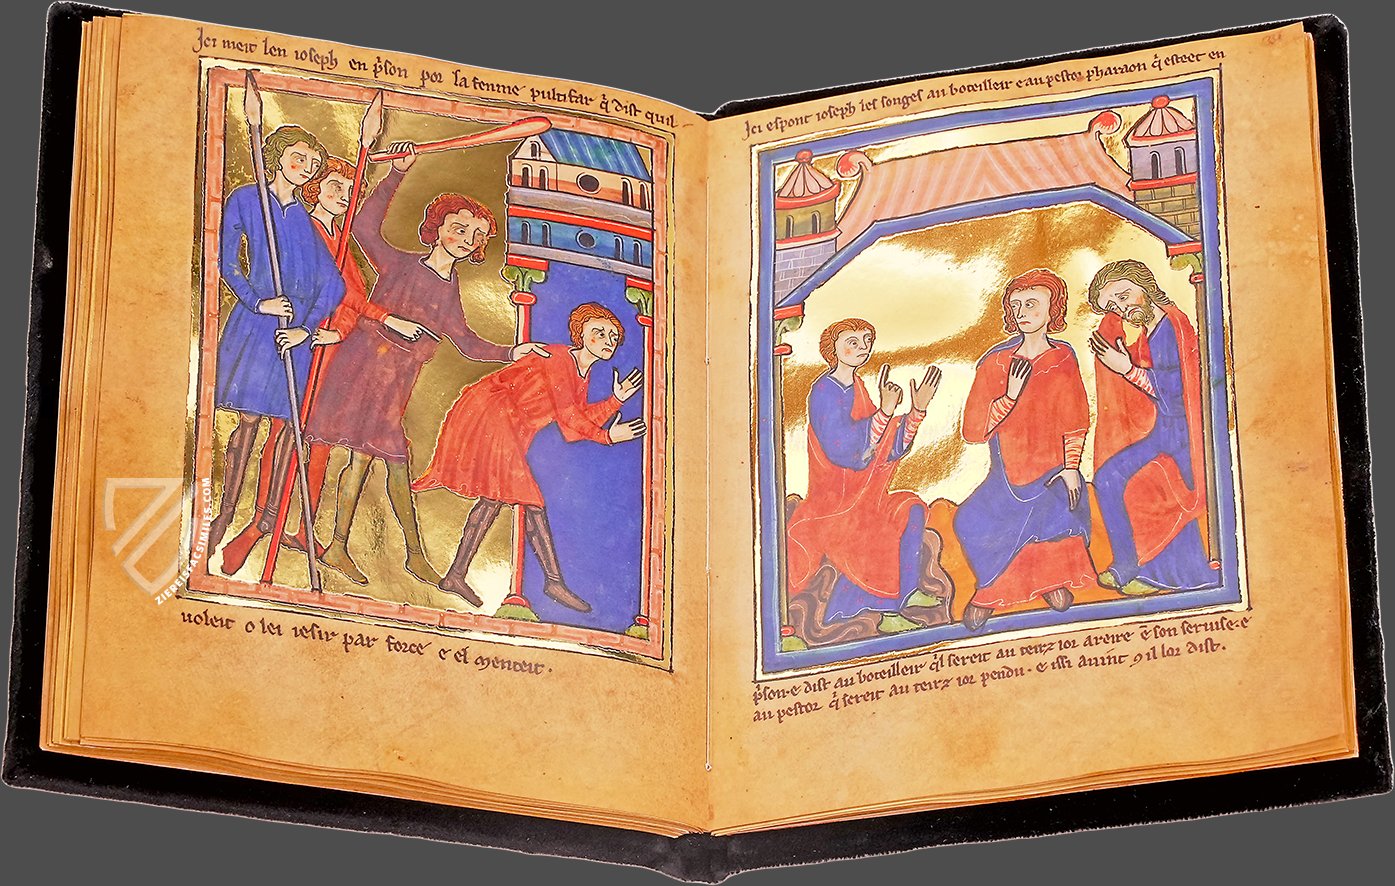 Ici meit len ioseph en p̃son por la femme pultifar q̃ dist quil
uoleit o lei iesir par force e el menteit.
Ici espont ioseph les songes au boteilleir e au pestor pharaon q̃ esteet en
p̃son. e dist au boteilleir q̃l sereit au teirz ior areire ẽ son seruise. e
au pestor q̃ sereit au teirz ior pendu. e issi auint 9 il lor dist.
ZIEREIS FACSIMILES.COM